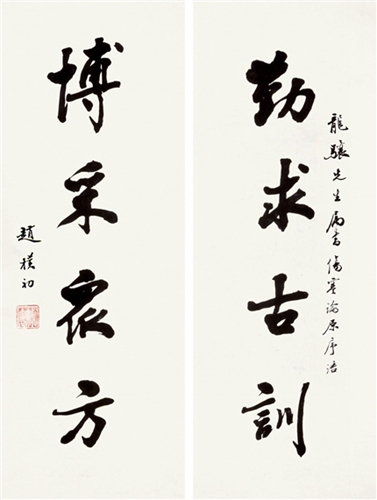 龍驤先生屬書傷寒論原序語
勤求古訓
博采眾方
趙樸初